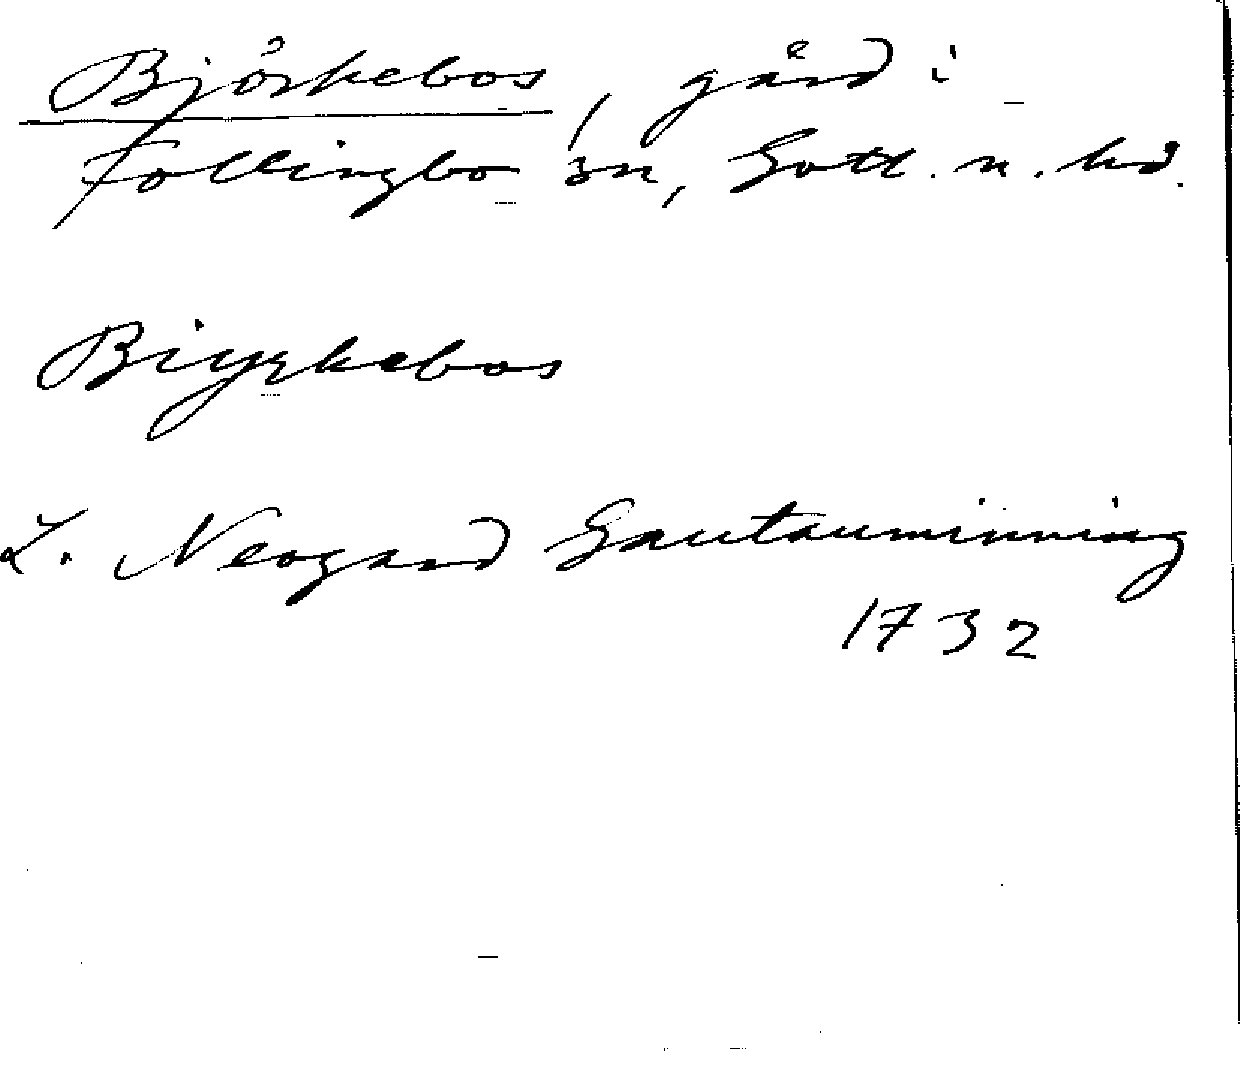 Björkebos, gård i
Follingbo sn, Gotl. n. hd.
Biyrkebos
L. Neogard Gautauminning
1732